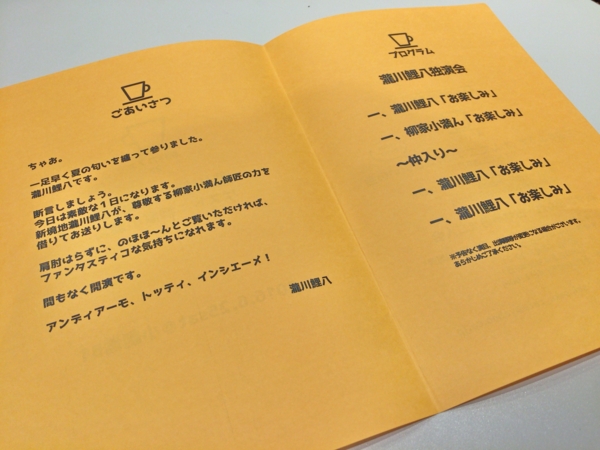 ごあいさつ
ちゃお。
一足早く夏の匂いを纏って参りました。
瀧川鯉八です。
断言しましょう。
今日は素敵な1日になります。
新境地瀧川鯉八が、尊敬する柳家小満ん師匠の力を
借りてお送りします。
肩肘はらずに、のほほ〜んとご覧いただければ、
ファンタスティコな気持ちになれます。
間もなく開演です。
アンディアーモ、トッティ、インシエーメ！
瀧川鯉八
プログラム
瀧川鯉八独演会
一、瀧川鯉八「お楽しみ」
一、柳家小満ん「お楽しみ」
〜仲入り〜
一、瀧川鯉八「お楽しみ」
一、瀧川鯉八「お楽しみ」
※予告なく演目、出演順等が変更になる場合がございます。
あらかじめご了承ください。